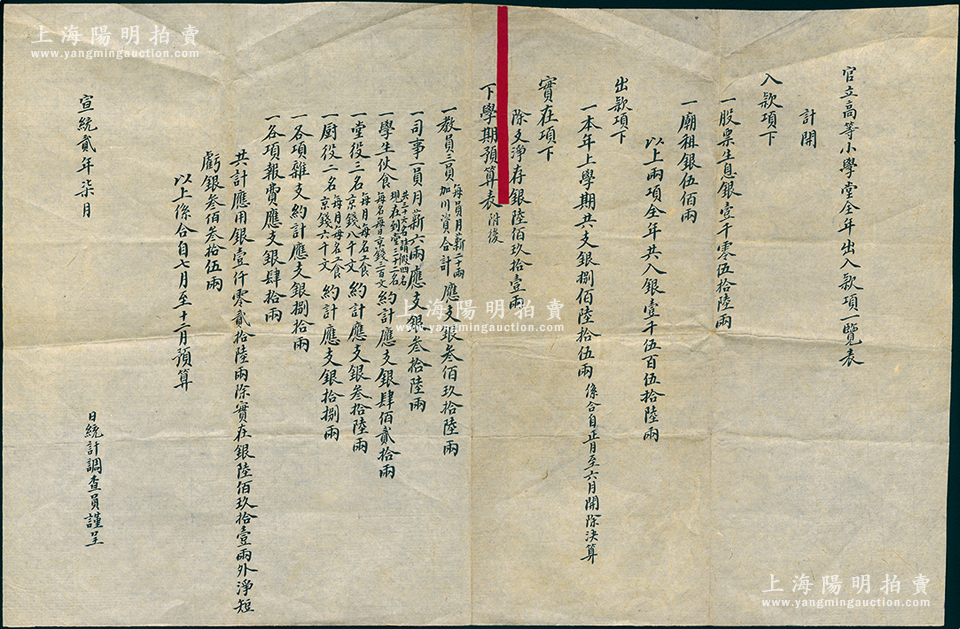 官立高等小學堂全年出入款項一覽表
計開
入款項下
一股票生息銀壹千零伍拾陸兩
一廟租銀伍佰兩
以上兩項全年共入銀壹千伍百伍拾陸兩
出款項下
一本年上學期共支銀捌佰陸拾伍兩 係合自正月至六月開除決算
實在項下
除支淨存銀陸佰玖拾壹兩
下學期預算表 附後
一教員三員 每員月薪二十兩 加川資合計 應支銀叁佰玖拾陸兩
一司事一員月薪六兩應支銀叁拾陸兩
一學生伙食 共三十六名請假四名 現在到堂三十二名 每名每日京錢三百文 約計應支銀肆佰貳拾兩
一堂役三名 每月每名工食 京錢八千文 約計應支銀叁拾陸兩
一廚役二名 每月每名工食 京錢六千文 約計應支銀拾捌兩
一各項雜支約計應支銀捌拾兩
一各項報費應支銀肆拾兩
共計應用銀壹仟零貳拾陸兩除實在銀陸佰玖拾壹兩外淨短
虧銀叁佰叁拾伍兩
以上係合自七月至十二月預算
宣統貳年柒月
日統計調查員謹呈
上海陽明拍賣
www.yangmingauction.com
上海陽明拍賣
www.yangmingauction.com
上海陽明拍賣
www.yangmingauction.com